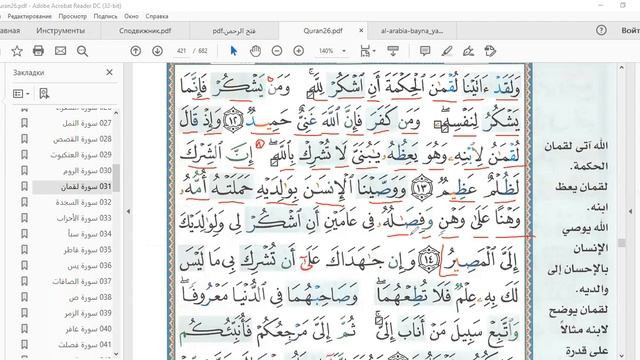 Quran26.pdf - Adobe Acrobat Reader DC (32-bit)
Редактирование Просмотр Подписание Окно Справка
Главная Инструменты Сподвижник.pdf فتح الرحمن.pdf Quran26.pdf al-arabia-bayna_ya...
421 / 682 140%
Закладки
027 سورة النمل
028 سورة القصص
029 سورة العنكبوت
030 سورة الروم
031 سورة لقمان
032 سورة السجدة
033 سورة الأحزاب
034 سورة سبأ
035 سورة فاطر
036 سورة يس
037 سورة الصافات
038 سورة ص
039 سورة الزمر
040 سورة غافر
041 سورة فصلت
وَلَقَدْ ءَاتَيْنَا لُقْمَٰنَ ٱلْحِكْمَةَ أَنِ ٱشْكُرْ لِلَّهِ ۚ وَمَن يَشْكُرْ فَإِنَّمَا
يَشْكُرُ لِنَفْسِهِۦ ۖ وَمَن كَفَرَ فَإِنَّ ٱللَّهَ غَنِىٌّ حَمِيدٌ ﴿١٢﴾ وَإِذْ قَالَ
لُقْمَٰنُ لِٱبْنِهِۦ وَهُوَ يَعِظُهُۥ يَٰبُنَىَّ لَا تُشْرِكْ بِٱللَّهِ ۖ إِنَّ ٱلشِّرْكَ
لَظُلْمٌ عَظِيمٌ ﴿١٣﴾ وَوَصَّيْنَا ٱلْإِنسَٰنَ بِوَٰلِدَيْهِ حَمَلَتْهُ أُمُّهُۥ
وَهْنًا عَلَىٰ وَهْنٍ وَفِصَٰلُهُۥ فِى عَامَيْنِ أَنِ ٱشْكُرْ لِى وَلِوَٰلِدَيْكَ
إِلَىَّ ٱلْمَصِيرُ ﴿١٤﴾ وَإِن جَٰهَدَاكَ عَلَىٰٓ أَن تُشْرِكَ بِى مَا لَيْسَ
لَكَ بِهِۦ عِلْمٌ فَلَا تُطِعْهُمَا ۖ وَصَاحِبْهُمَا فِى ٱلدُّنْيَا مَعْرُوفًا ۖ
وَٱتَّبِعْ سَبِيلَ مَنْ أَنَابَ إِلَىَّ ۚ ثُمَّ إِلَىَّ مَرْجِعُكُمْ فَأُنَبِّئُكُم
الله آتى لقمان
الحكمة.
لقمان يعظ
ابنه.
الله يوصي
الإنسان
بالإحسان إلى
والديه.
لقمان يوضح
لابنه مثالاً
على قدرة